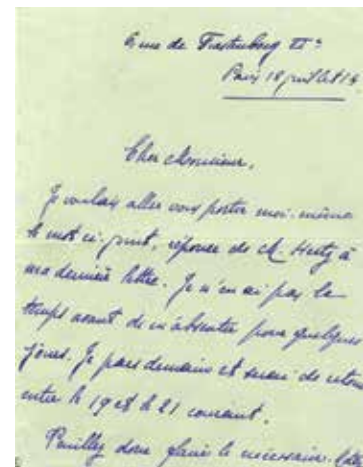 6 rue de Furstenberg VIe
Paris 18 juillet 14
Cher Monsieur,
Je voulais aller vous porter moi-même
le mot ci-joint, réponse de M. Hertz à
ma dernière lettre. Je n'en ai pas le
temps avant de m'absenter pour quelques
jours. Je pars demain et serai de retour
entre le 19 et le 21 courant.
Veuillez donc faire le nécessaire.